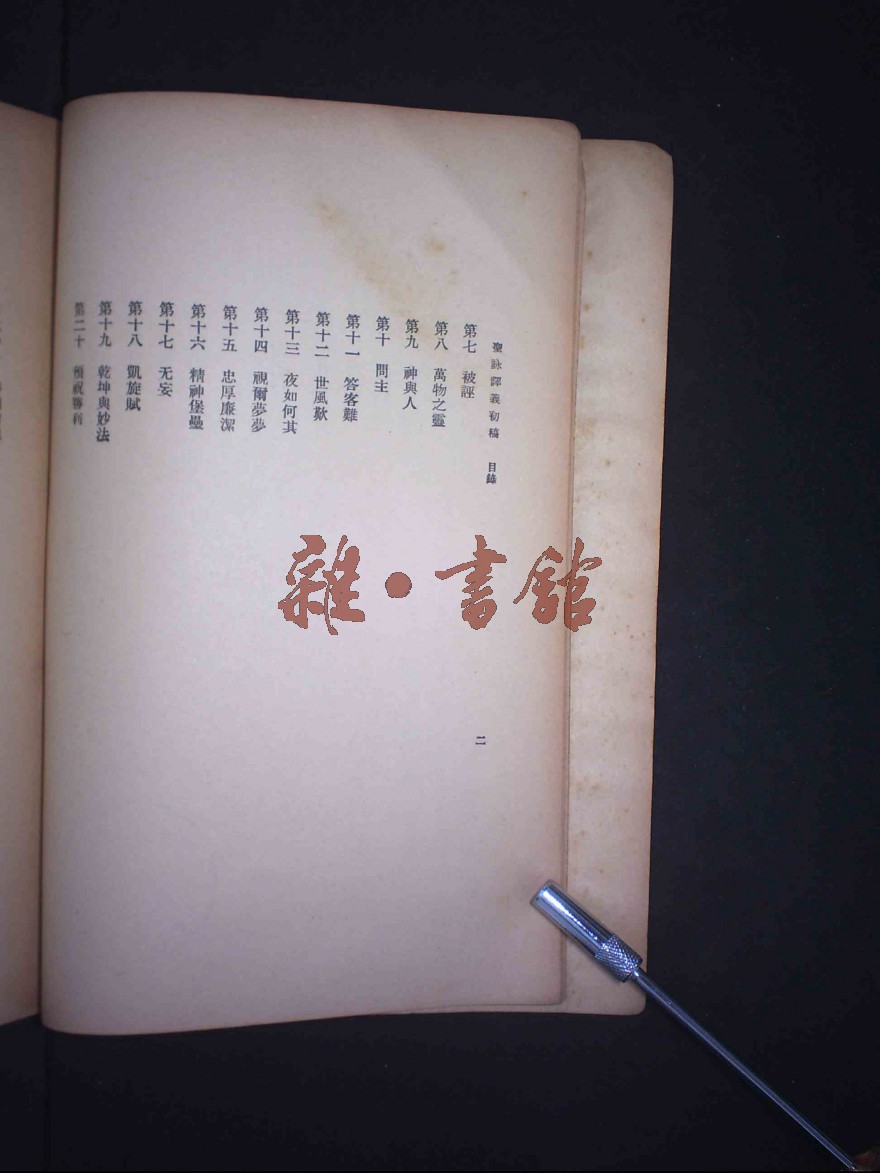 聖詠譯義初稿 目錄
二
第七 被誣
第八 萬物之靈
第九 神與人
第十 問主
第十一 答客難
第十二 世風歎
第十三 夜如何其
第十四 視爾夢夢
第十五 忠厚廉潔
第十六 精神堡壘
第十七 无妄
第十八 凱旋賦
第十九 乾坤與妙法
第二十 預祝勝利
雜·書館